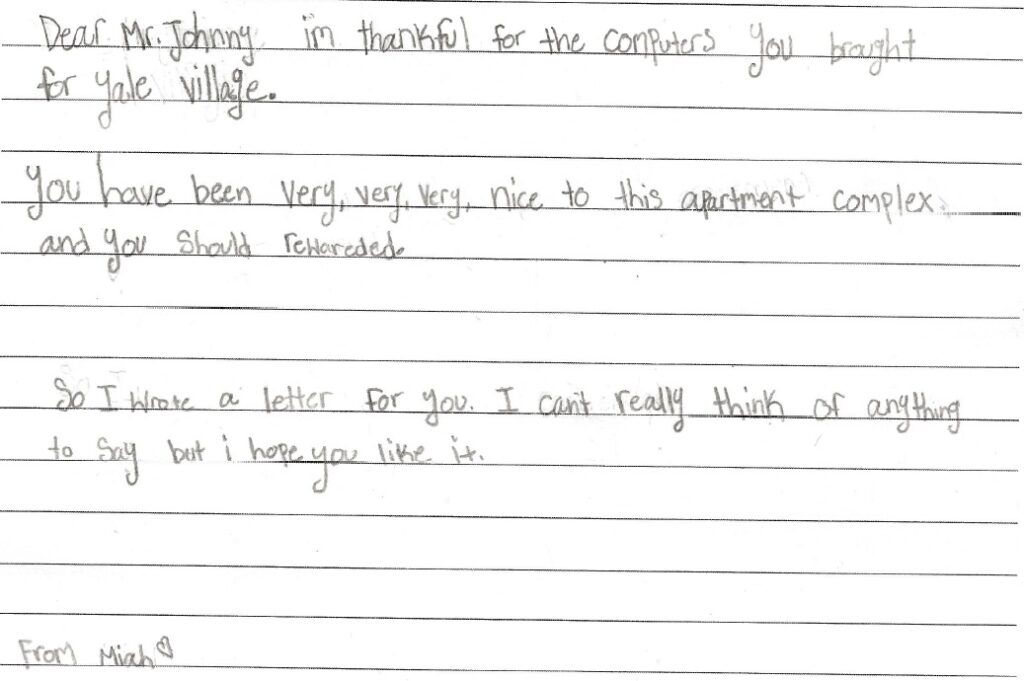 Dear Mr. Johnny im thankful for the computers you brought
for Yale village.
you have been very, very, very, nice to this apartment complex.
and you should rewareded.
So I wrote a letter for you. I can't really think of anything
to say but i hope you like it.
From Miah